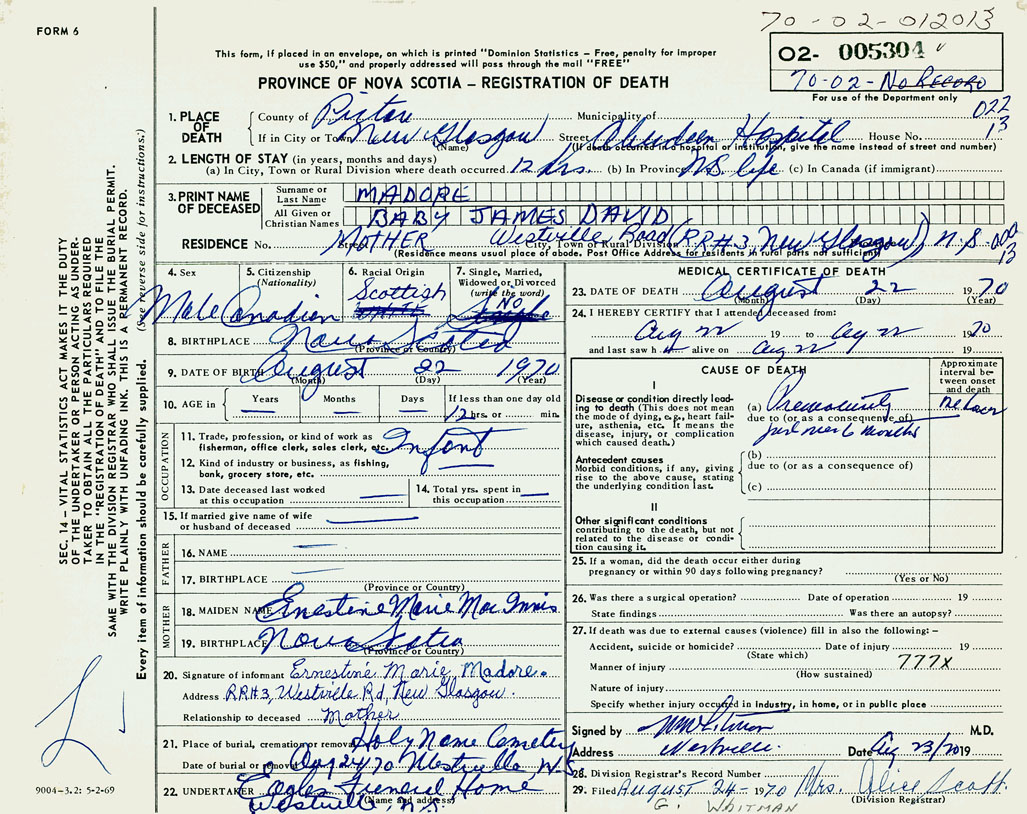 FORM 6
70-02-012013
This form, if placed in an envelope, on which is printed "Dominion Statistics – Free, penalty for improper
use $50," and properly addressed will pass through the mail "FREE"
02- 005304
70-02-No RECORD
For use of the Department only
PROVINCE OF NOVA SCOTIA – REGISTRATION OF DEATH
022
13
1. PLACE OF DEATH
County of Pictou Municipality of
If in City or Town New Glasgow Street Aberdeen Hospital House No.
(Name) (If death occurred in a hospital or institution, give the name instead of street and number)
2. LENGTH OF STAY (in years, months and days)
(a) In City, Town or Rural Division where death occurred 12 hrs. (b) In Province N.S. life (c) In Canada (if immigrant)
3. PRINT NAME OF DECEASED
Surname or Last Name MADORE
All Given or Christian Names BABY JAMES DAVID
RESIDENCE No. Street MOTHER Westville Road (RR#3 New Glasgow) N.S.
City, Town or Rural Division
(Residence means usual place of abode. Post Office Address for residents in rural parts not sufficient)
13
4. Sex Male
5. Citizenship (Nationality) Canadian
6. Racial Origin Scottish
7. Single, Married, Widowed or Divorced (write the word) NO Single
8. BIRTHPLACE Nova Scotia
(Province or Country)
9. DATE OF BIRTH August 22 1970
(Month) (Day) (Year)
10. AGE in Years Months Days If less than one day old
12 hrs. or min.
OCCUPATION
11. Trade, profession, or kind of work as
fisherman, office clerk, sales clerk, etc. Infant
12. Kind of industry or business, as fishing,
bank, grocery store, etc.
13. Date deceased last worked
at this occupation
14. Total yrs. spent in
this occupation
15. If married give name of wife
or husband of deceased
FATHER
16. NAME
17. BIRTHPLACE
(Province or Country)
MOTHER
18. MAIDEN NAME Ernestine Marie MacInnis
19. BIRTHPLACE Nova Scotia
(Province or Country)
20. Signature of informant Ernestine Marie Madore.
Address RR#3, Westville Rd, New Glasgow.
Relationship to deceased Mother
21. Place of burial, cremation or removal Holy Name Cemetery
Date of burial or removal Aug 24/70 Westville N.S.
22. UNDERTAKER Eagles Funeral Home
(Name and address)
Westville, N.S.
MEDICAL CERTIFICATE OF DEATH
23. DATE OF DEATH August 22 1970
(Month) (Day) (Year)
24. I HEREBY CERTIFY that I attended deceased from:
Aug 22 19 to Aug 22 1970
and last saw h alive on Aug 22 19
CAUSE OF DEATH
Approximate interval between onset and death
I
Disease or condition directly leading to death (This does not
mean the mode of dying, e.g., heart failure,
asthenia, etc. It means the
disease, injury, or complication
which caused death.)
(a) Prematurity
due to (or as a consequence of)
just over 6 months
Antecedent causes
Morbid conditions, if any, giving
rise to the above cause, stating
the underlying condition last.
(b)
due to (or as a consequence of)
(c)
II
Other significant conditions
contributing to the death, but not
related to the disease or condition
causing it.
25. If a woman, did the death occur either during
pregnancy or within 90 days following pregnancy?
(Yes or No)
26. Was there a surgical operation? Date of operation 19
State findings Was there an autopsy?
27. If death was due to external causes (violence) fill in also the following: –
Accident, suicide or homicide? Date of injury 19
(State which)
777x
Manner of injury
(How sustained)
Nature of injury
Specify whether injury occurred in Industry, in home, or in public place
Signed by M.D.
Address Westville. Date Aug 23/70 19
28. Division Registrar's Record Number
29. Filed August 24- 1970 Mrs. Alice Scott.
(Division Registrar)
G. WHITMAN
SEC. 14 – VITAL STATISTICS ACT MAKES IT THE DUTY
OF THE UNDERTAKER OR PERSON ACTING AS UNDER-
TAKER TO OBTAIN ALL THE PARTICULARS REQUIRED
IN THE "REGISTRATION OF DEATH" AND TO FILE THE
SAME WITH THE DIVISION REGISTRAR WHO SHALL ISSUE THE BURIAL PERMIT.
WRITE PLAINLY WITH UNFADING INK. THIS IS A PERMANENT RECORD.
Every item of information should be carefully supplied. (See reverse side for instructions.)
9004-3.2: 5-2-69